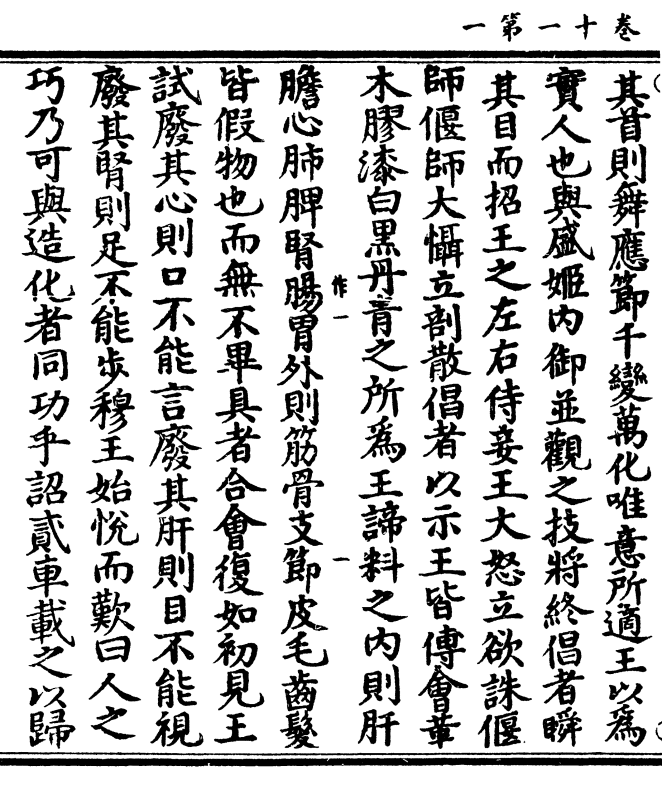 卷十一第一
其首則舞應節千變萬化唯意所適王以爲
實人也與盛姬內御並觀之技將終倡者瞬
其目而招王之左右侍妾王大怒立欲誅偃
師偃師大懾立剖散倡者以示王皆傅會革
木膠漆白黑丹青之所爲王諦料之內則肝
作一
一
膽心肺脾腎腸胃外則筋骨支節皮毛齒髮
皆假物也而無不畢具者合會復如初見王
試廢其心則口不能言廢其肝則目不能視
廢其腎則足不能步穆王始悅而歎曰人之
巧乃可與造化者同功乎詔貳車載之以歸